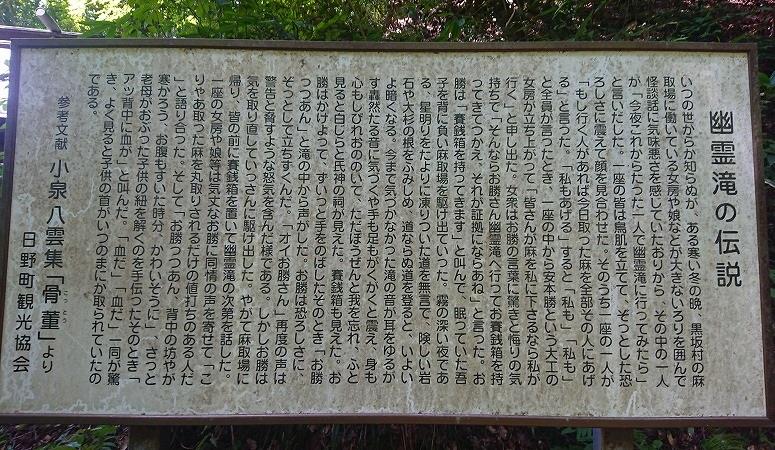 幽霊滝の伝説
いつの世からか知らぬが、ある寒い冬の晩、黒坂村の麻
取場に働いている女房や娘などが大きないろりを囲んで
怪談話に気味悪さを感じていたおりから、その中の一人
が「今夜これからたった一人で幽霊滝に行ってみたら」
と言いだした。一座の皆は鳥肌を立てて、そっとした恐
ろしさに震えて顔を見合わせた。そのうち一座の一人が
「もし行く人があれば今日取った麻を全部その人にあげ
る」と言った。「私もあげる」すると「私も」「私も」
と全員が言ったとき、一座の中から安本勝という大工の
女房が立ち上がって「皆さんが麻を私に下さるなら私が
行く」と申し出た。女衆はお勝の言葉に驚きと悔りの気
持ちで「そんならお勝さん幽霊滝へ行ってお賽銭箱を持
ってきてつかえ。それが証拠にならあね」と言った。お
勝は「賽銭箱を持ってきます」と叫んで、眠っていた吾
子を背に負い麻取場を駆け出していった。霧の深い夜であ
る、星明りをたよりに凍りついた道を無言で、険しい岩
石や大杉の根をふみしめ、道ならぬ道を登ると、いよい
よ暗くなる。今まで気づかなかった滝の音が耳をゆるが
す轟然たる音に気づくや手も足もがくがくと震え、身も
心もしびれおののいて、ただぼうぜんと我を忘れ、ふと
見ると白じらと氏神の祠が見えた。賽銭箱も見えた。お
勝はかけよって、ずいっと手をのばしたそのとき「お勝
っつあん」と滝の中から声がした。お勝は恐ろしさに、
そっとして立ちすくんだ。「オイお勝さん」再度の声は
警告と脅すような怒気を含んだ様である。しかしお勝は
気を取り直していっさんに駆け出した。やがて麻取場に
帰り、皆の前に賽銭箱を置いて幽霊滝の次第を話した。
一座の女房や娘等は気丈なお勝に同情の声を寄せて「こ
りゃあ取った麻を丸取りされるだけの値打ちのある人だ
」と語り合った。そして「お勝っつあん、背中の坊やが
寒かろう、お腹もすいた時分、かわいそうに」、さっと
老母がおぶった子供の紐を解くのを手伝ったそのとき「
アッ背中に血が」と叫んだ。「血だ」「血だ」一同が驚
き、よく見ると子供の首がいつのまにか取られていたの
である。
参考文献 小泉八雲集「骨董」より
こっとう
日野町観光協会